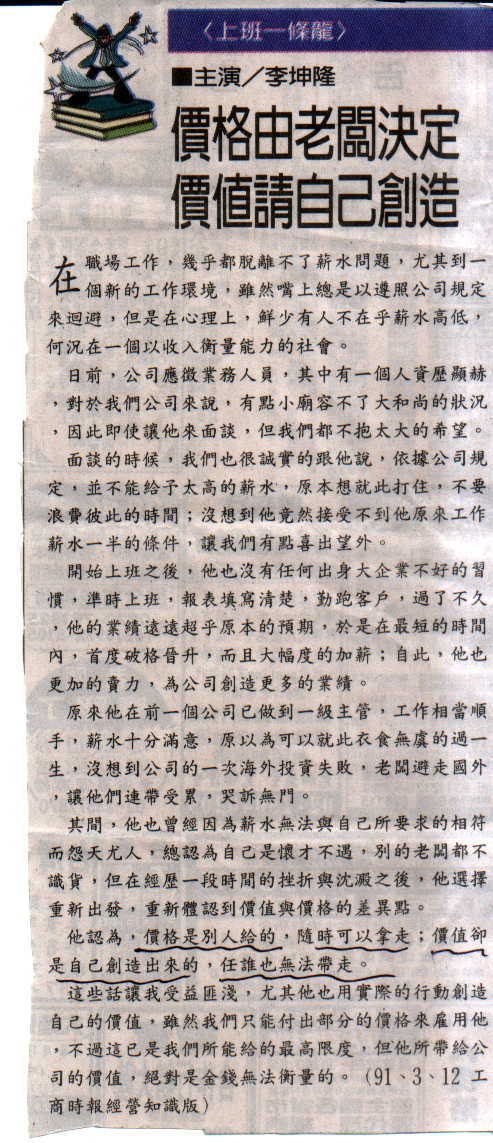 〈上班一條龍〉
■主演／李坤隆
價格由老闆決定
價值請自己創造
在職場工作，幾乎都脫離不了薪水問題，尤其到一
個新的工作環境，雖然嘴上總是以遵照公司規定
來迴避，但是在心理上，鮮少有人不在乎薪水高低，
何況在一個以收入衡量能力的社會。
日前，公司應徵業務人員，其中有一個人資歷顯赫
，對於我們公司來說，有點小廟容不了大和尚的狀況
，因此即使讓他來面談，但我們都不抱太大的希望。
面談的時候，我們也很誠實的跟他說，依據公司規
定，並不能給予太高的薪水，原本想就此打住，不要
浪費彼此的時間；沒想到他竟然接受不到他原來工作
薪水一半的條件，讓我們有點喜出望外。
開始上班之後，他也沒有任何出身大企業不好的習
慣，準時上班，報表填寫清楚，勤跑客戶，過了不久
，他的業績遠遠超乎原本的預期，於是在最短的時間
內，首度破格晉升，而且大幅度的加薪；自此，他也
更加的賣力，為公司創造更多的業績。
原來他在前一個公司已做到一級主管，工作相當順
手，薪水十分滿意，原以為可以就此衣食無虞的過一
生，沒想到公司的一次海外投資失敗，老闆避走國外
，讓他們連帶受累，哭訴無門。
其間，他也曾經因為薪水無法與自己所要求的相符
而怨天尤人，總認為自己是懷才不遇，別的老闆都不
識貨，但在經歷一段時間的挫折與沈澱之後，他選擇
重新出發，重新體認到價值與價格的差異點。
他認為，價格是別人給的，隨時可以拿走；價值卻
是自己創造出來的，任誰也無法帶走。
這些話讓我受益匪淺，尤其他也用實際的行動創造
自己的價值，雖然我們只能付出部分的價格來雇用他
，不過這已是我們所能給的最高限度，但他所帶給公
司的價值，絕對是金錢無法衡量的。（91、3、12 工
商時報經營知識版）